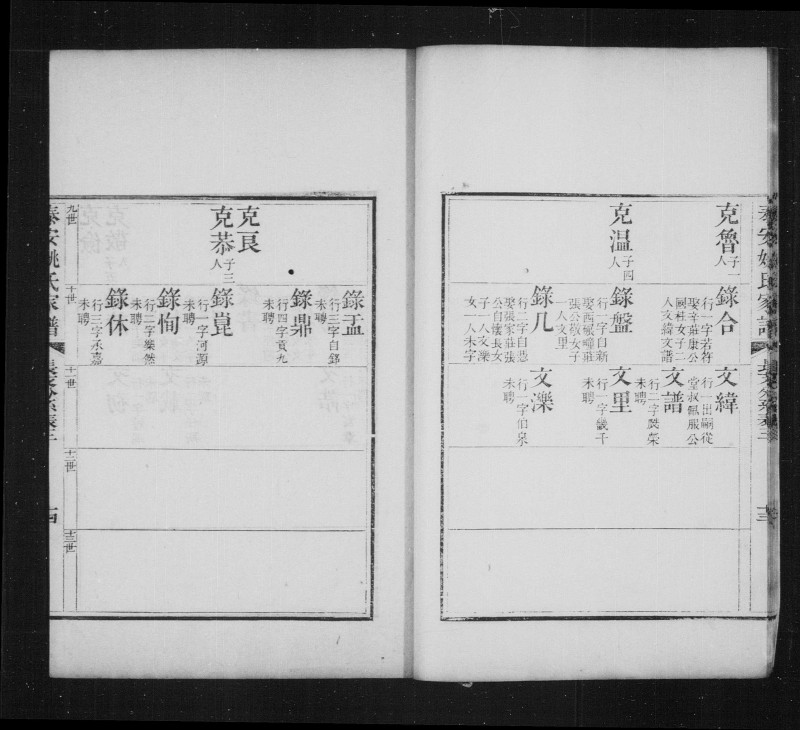 泰安姚氏家譜
克魯
子一人
錄合
行一字若符
娶辛莊康公
國柱女子二
人文緯文譜
文緯
行一出嗣從
堂叔佩服公
文譜
行二字裴榮
未聘
克温
子四人
錄盤
行一字自新
娶西城嶂莊
張公敬女子
一人文里
文里
行一字畿千
未聘
錄几
行二字自憑
娶張家莊張
公自嬟長女
子一人文濼
女一人未字
文濼
行一字伯泉
未聘
十三
錄盂
行三字自鐸
未聘
錄鼎
行四字貢九
未聘
克良
克恭
子三人
錄崑
行一字河源
未聘
錄恂
行二字樂然
未聘
錄休
行三字承嘉
未聘
九世
十世
十一世
十二世
十三世
泰安姚氏家譜
十四